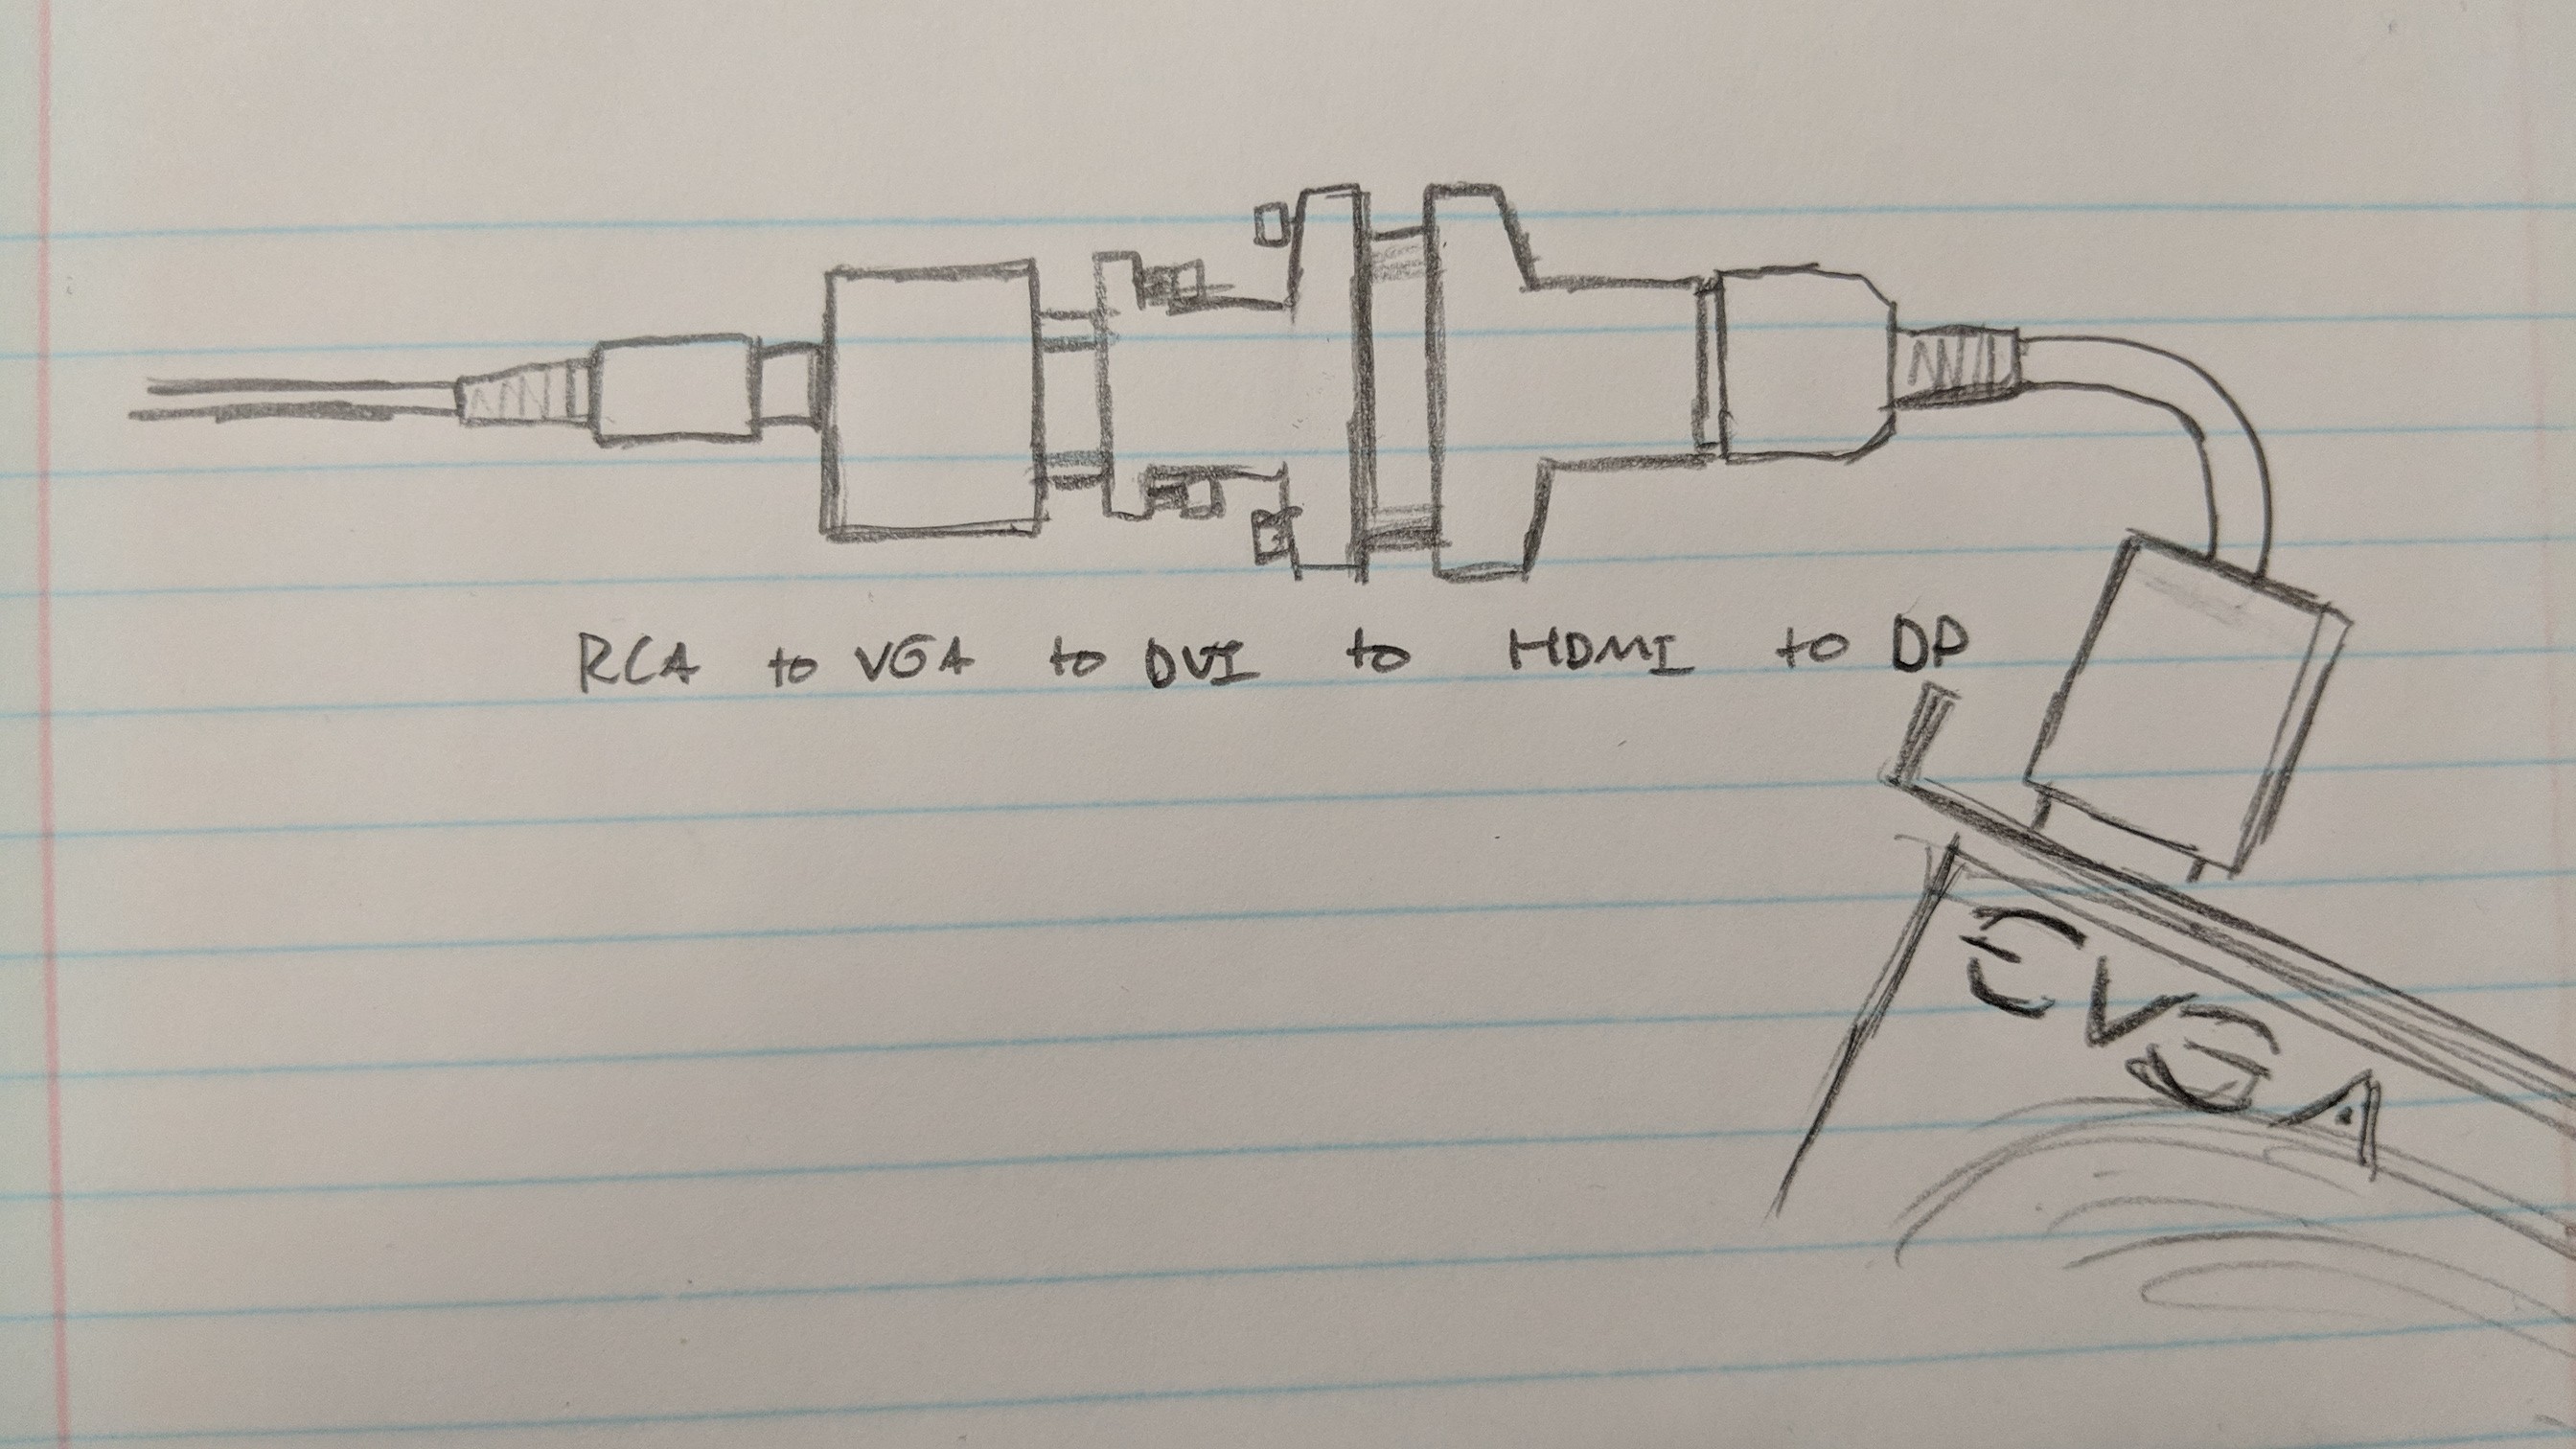 RCA to VGA to DVI to HDMI to DP
EVGA